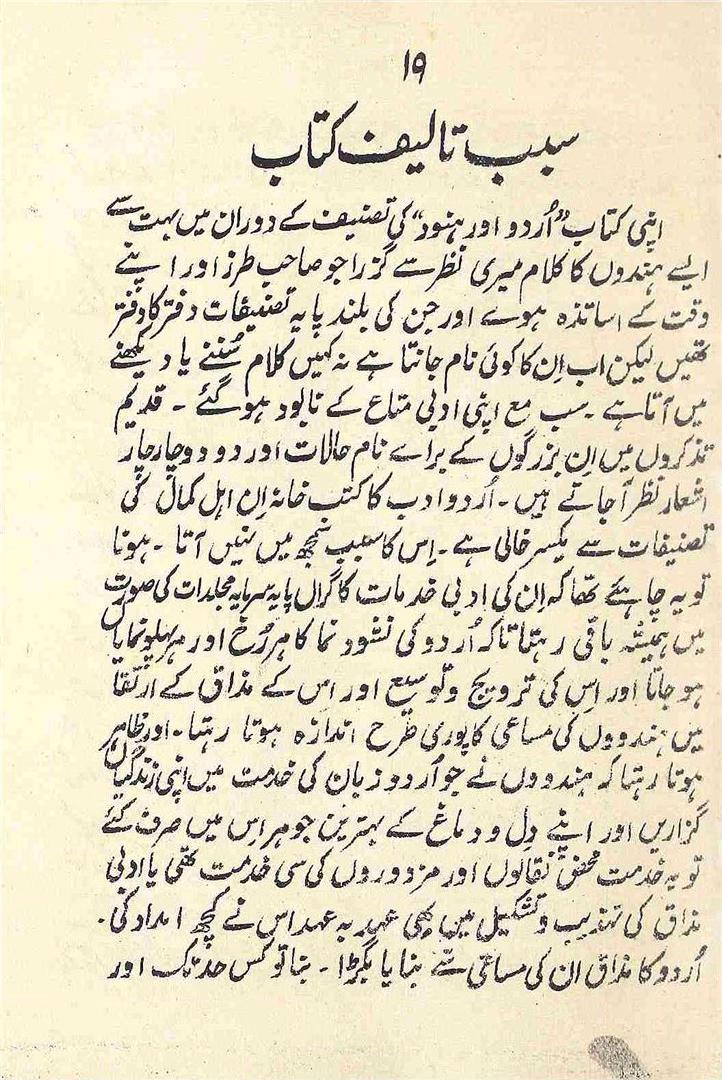 ۱۹
سبب تالیف کتاب
اپنی کتاب "اُردو اور ہنود" کی تصنیف کے دوران میں بہت سے
ایسے ہندوں کا کلام میری نظر سے گزرا جو صاحب طرز اور اپنے
وقت کے اساتذہ ہوے اور جن کی بلند پایہ تصنیفات دفتر کا دفتر
تھیں لیکن اب اِن کا کوئی نام جانتا ہے نہ کہیں کلام سُننے یا دیکھنے
میں آتا ہے ۔ سب مع اپنی ادبی متاع کے نابود ہو گئے ۔ قدیم
تذکروں میں اِن بزرگوں کے براے نام حالات اور دو دو چار چار
اشعار نظر آجاتے ہیں ۔ اُردو ادب کا کتب خانہ اِن اہل کمال کی
تصنیفات سے یکسر خالی ہے ۔ اِس کا سبب سمجھ میں نہیں آتا ۔ ہونا
تو یہ چاہیے تھا کہ اِن کی ادبی خدمات کا گراں پایہ سرمایہ مجلدات کی صورت
میں ہمیشہ باقی رہتا تاکہ اُردو کی نشوونما کا ہر رُخ اور ہر پہلو نمایاں
ہو جاتا اور اِس کی ترویج و توسیع اور اِس کے مذاق کے ارتقا
میں ہندووں کی مساعی کا پوری طرح اندازہ ہوتا رہتا ۔ اور ظاہر
ہوتا رہتا کہ ہندووں نے جو اُردو زبان کی خدمت میں اپنی زندگیاں
گزاریں اور اپنے دِل و دماغ کے بہترین جوہر اِس میں صرف کئے
تو یہ خدمت محض نقالوں اور مزدوروں کی سی خدمت تھی یا ادبی
مذاق کی تہذیب و تشکیل میں بھی عہد بہ عہد اس نے کچھ امداد کی ۔
اُردو کا مذاق ان کی مساعی سے بنا یا بگڑا ۔ بنا تو کس حد تک اور